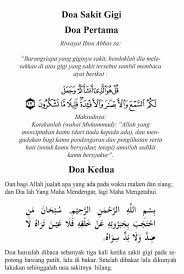 Doa Sakit Gigi
Doa Pertama
Riwayat Ibnu Abbas ra:
"Barangsiapa yang giginya sakit, hendaklah dia me-
letakkan di atas gigi yang sakit tersebut sambil membaca
ayat berikut :
قُلْ هُوَ الَّذِي أَنْشَأَكُمْ وَجَعَلَ
لَكُمُ السَّمْعَ وَالْأَبْصَارَ وَالْأَفْئِدَةَ قَلِيلًا مَا تَشْكُرُونَ
Maksudnya:
Katakanlah (wahai Muhammad): "Allah yang
menciptakan kamu (dari tiada kepada ada), dan meng-
adakan bagi kamu pendengaran dan penglihatan serta
hati (untuk kamu bersyukur, tetapi) amatlah sedikit
kamu bersyukur".
Doa Kedua
Dan bagi Allah jualah apa yang ada pada waktu malam dan siang;
dan Dia lah Yang Maha Mendengar, lagi Maha Mengetahui.
بِسْمِ اللَّهِ الرَّحْمَنِ الرَّحِيْمِ. سُبْحَانَ مَنْ
Doa hanislah dibaca sebanyak tiga kali ketika sakit gigi pada se-
potong bawang putih, lalu di bakar. Setelah dibakar dikunyah
lakukan sehinggalah rasa sakitnya hilang.